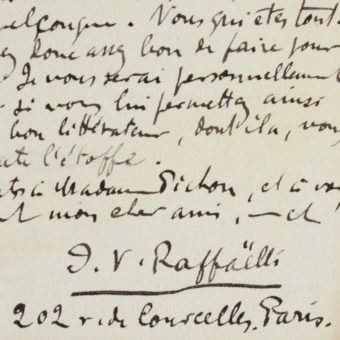 uelconque. Vous qui êtes tout-
ez donc assez bon de faire pour
Je vous serai personnellement
si vous lui permettez ainsi
bon littérateur, dont il a, vous
ute l'étoffe.
à Madame Pichon, et à vo
t mon cher ami, — et
J. V. Raffaëlli
202 r. de Courcelles. Paris.